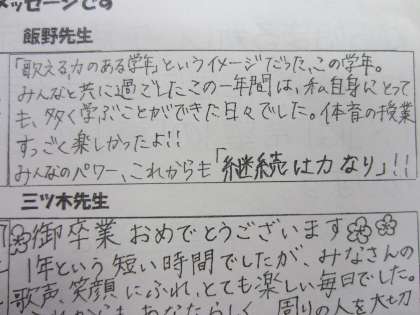 メッセージです
飯野先生
「歌える力のある学年」というイメージだった、この学年。
みんなと共に過ごしたこの一年間は、私自身にとって
も、多く学ぶことができた日々でした。体育の授業
すっごく楽しかったよ!!
みんなのパワー、これからも「継続は力なり」!!
三ツ木先生
御卒業おめでとうございます
1年という短い時間でしたが、みなさんの
歌声、笑顔にふれ、とても楽しい毎日でした。
これからも あなたらしく、周りの人を大切